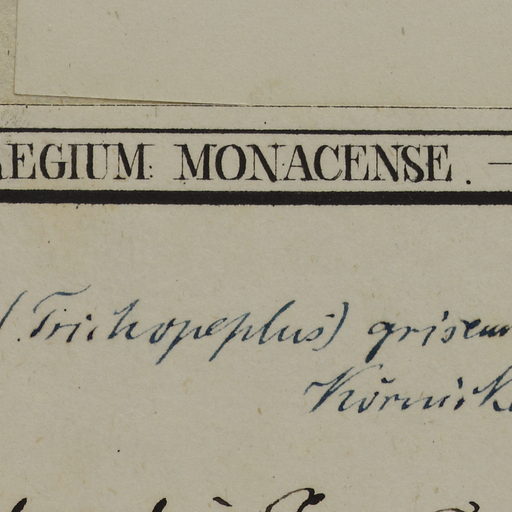 REGIUM MONACENSE. —
(Trichopeplus) griseum
Körnicke